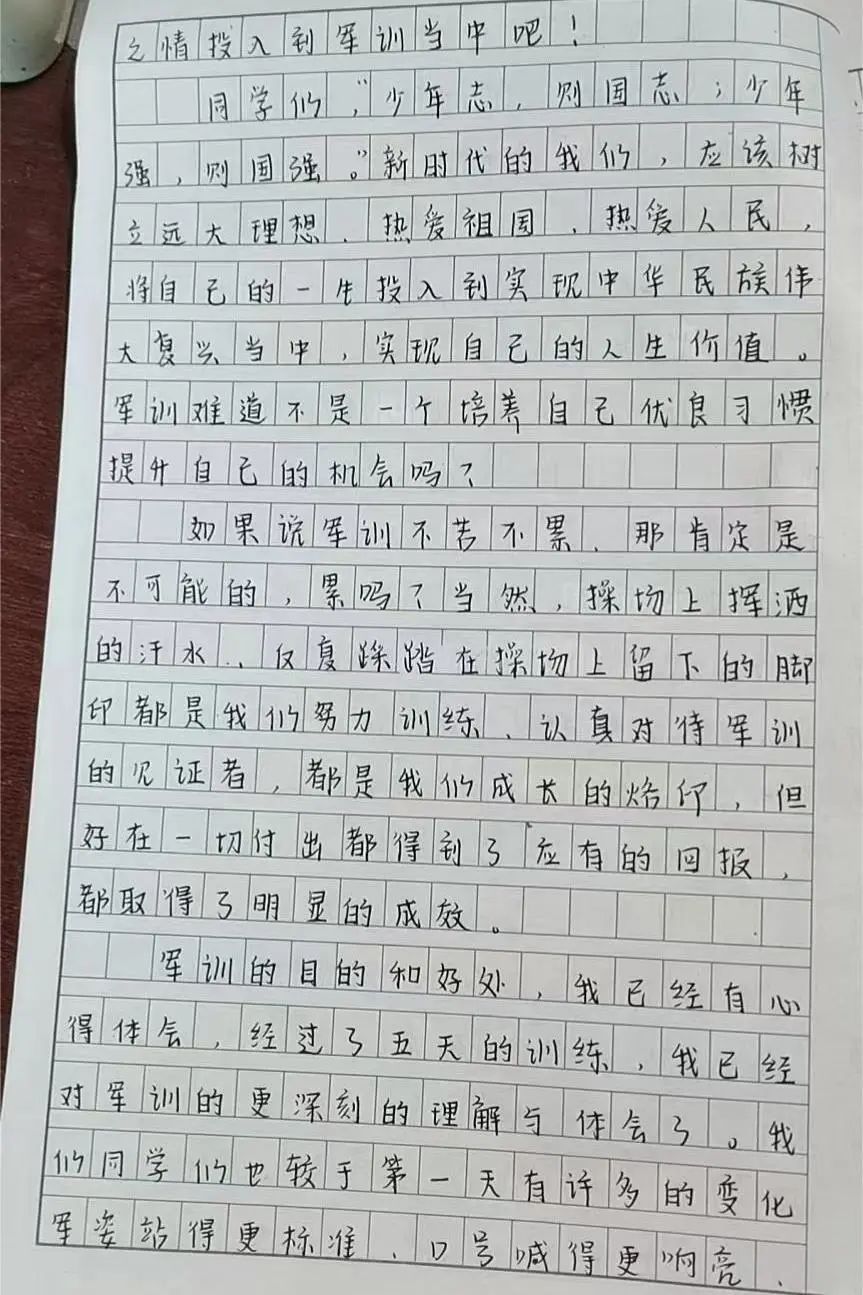 之情投入到军训当中吧！
同学们，“少年志，则国志；少年
强，则国强。”新时代的我们，应该树
立远大理想、热爱祖国、热爱人民，
将自己的一生投入到实现中华民族伟
大复兴当中，实现自己的人生价值。
军训难道不是一个培养自己优良习惯
提升自己的机会吗？
如果说军训不苦不累、那肯定是
不可能的，累吗？当然，操场上挥洒
的汗水、反复踩踏在操场上留下的脚
印都是我们努力训练、认真对待军训
的见证者，都是我们成长的烙印，但
好在一切付出都得到了应有的回报，
都取得了明显的成效。
军训的目的和好处，我已经有心
得体会，经过了五天的训练，我已经
对军训的更深刻的理解与体会了。我
们同学们也较于第一天有许多的变化
军姿站得更标准、口号喊得更响亮、